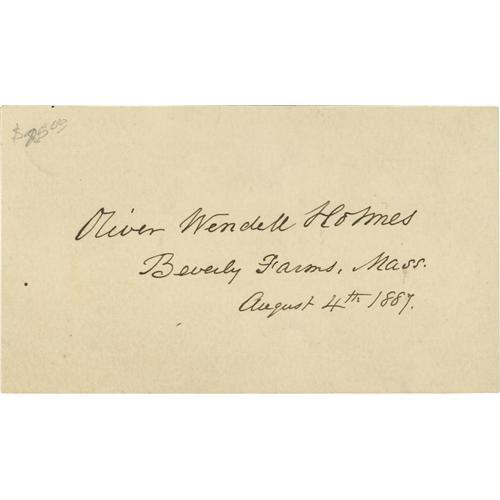 $25.00
Oliver Wendell Holmes
Beverly Farms, Mass.
August 4th 1887.